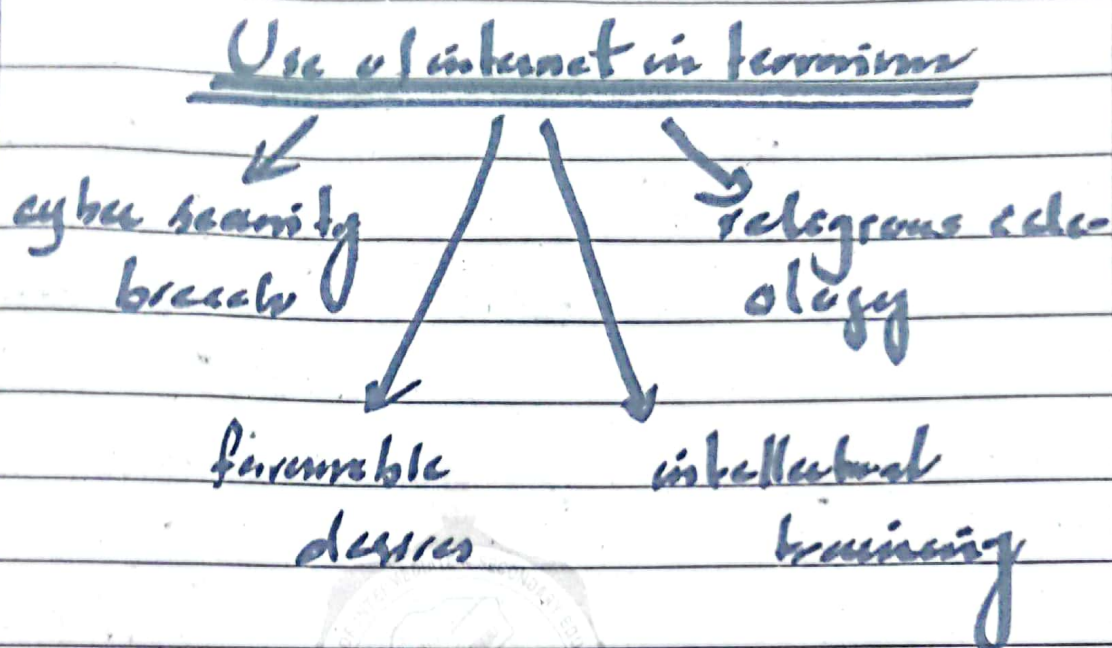 Use of internet in terrorism
cyber security
breach
religious ide-
ology
favourable
desires
intellectual
training